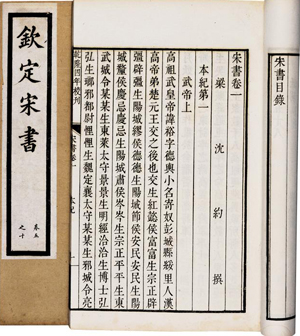 宋書目錄
宋書卷一
梁 沈約 撰
本紀第一
武帝上
高祖武皇帝諱裕字德輿小名寄奴彭城縣綏里人漢
高帝弟楚元王交之後也交生紅懿侯富富生宗正辟
彊辟彊生陽城繆侯德德生陽城節侯安民安民生陽
城釐侯慶忌慶忌生陽城肅侯岑岑生宗正平平生東
武城令某某生東萊太守景景生明經洽洽生博士弘
弘生琅邪都尉悝悝生魏定襄太守某某生邪城令亮
乾隆四年校刊 宋書卷一 本紀 一
欽定宋書
卷五
之十